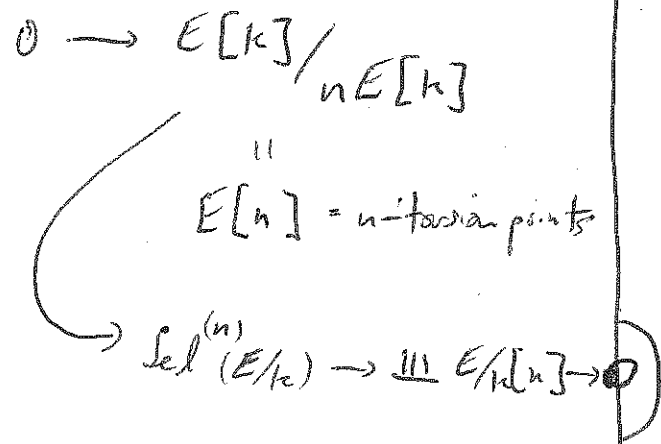 0 → E[k]/nE[k]
=
E[n] = n-torsion points
Sel^(n)(E/k) → Ш E/k[n] → 0